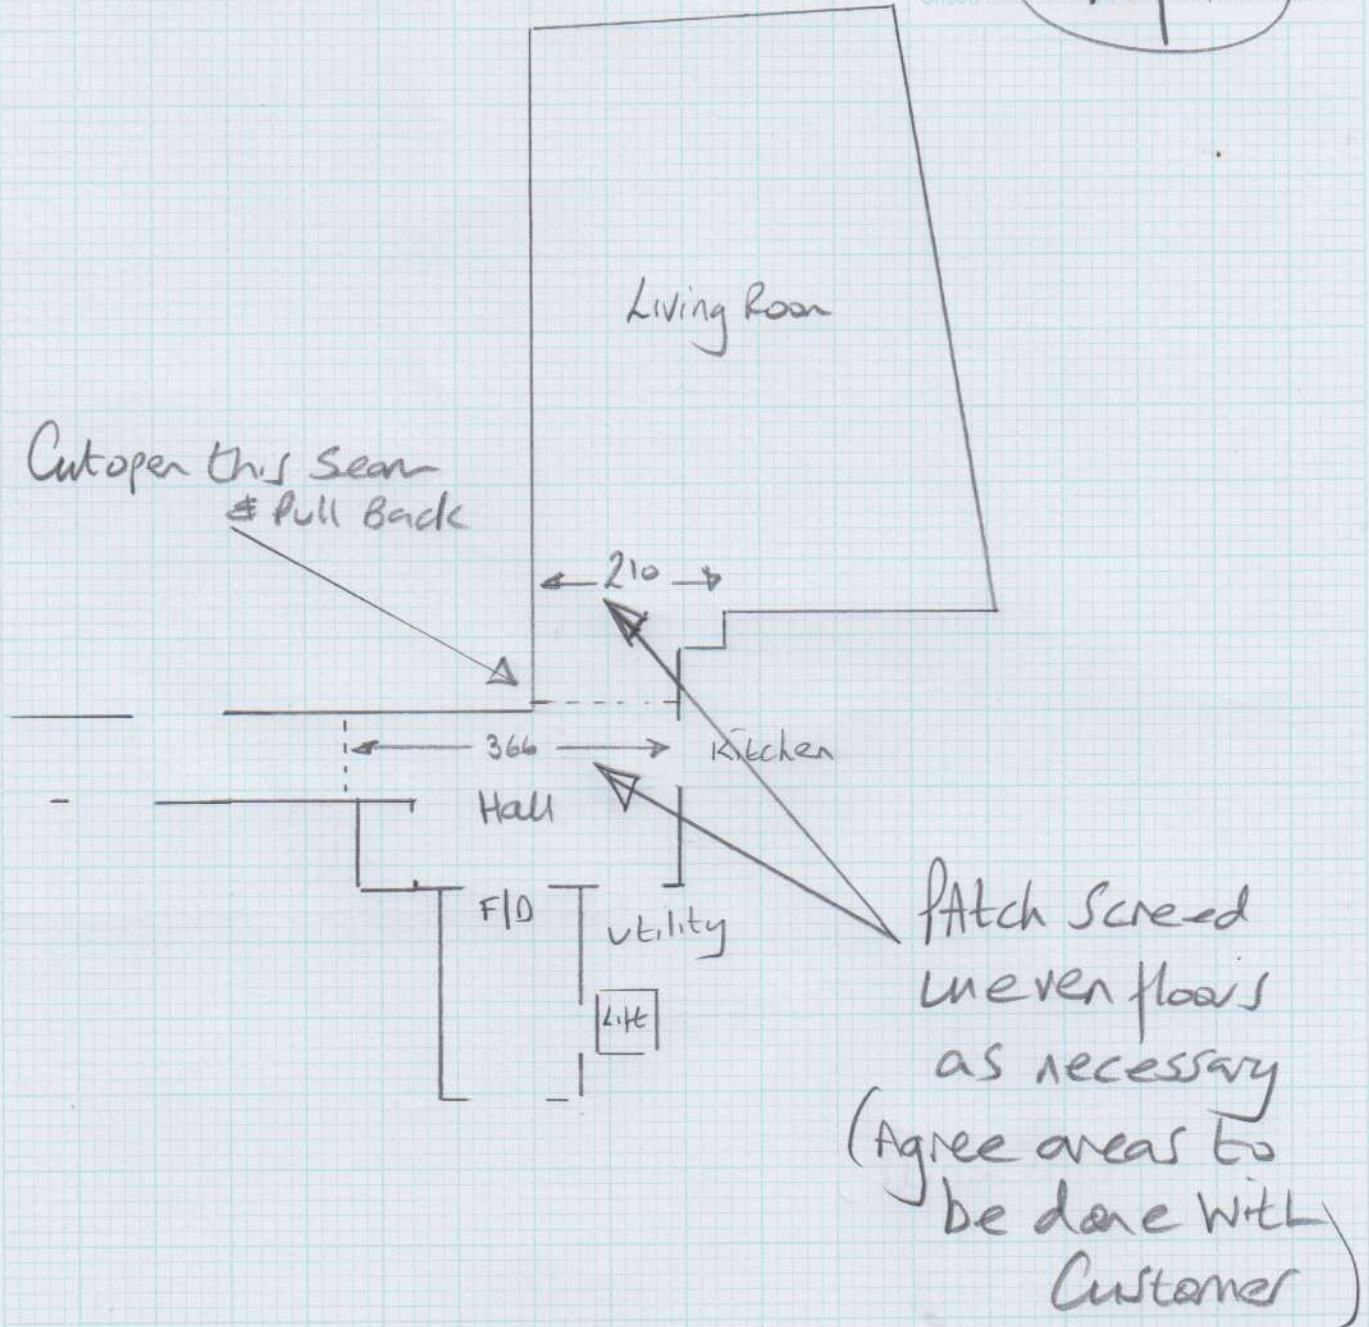 Living Room
Cut open this Seam
& Pull Back
210
366
Kitchen
Hall
F/D
Utility
Lift
PAtch Screed
uneven floors
as necessary
(Agree areas to
be done With
Customer)